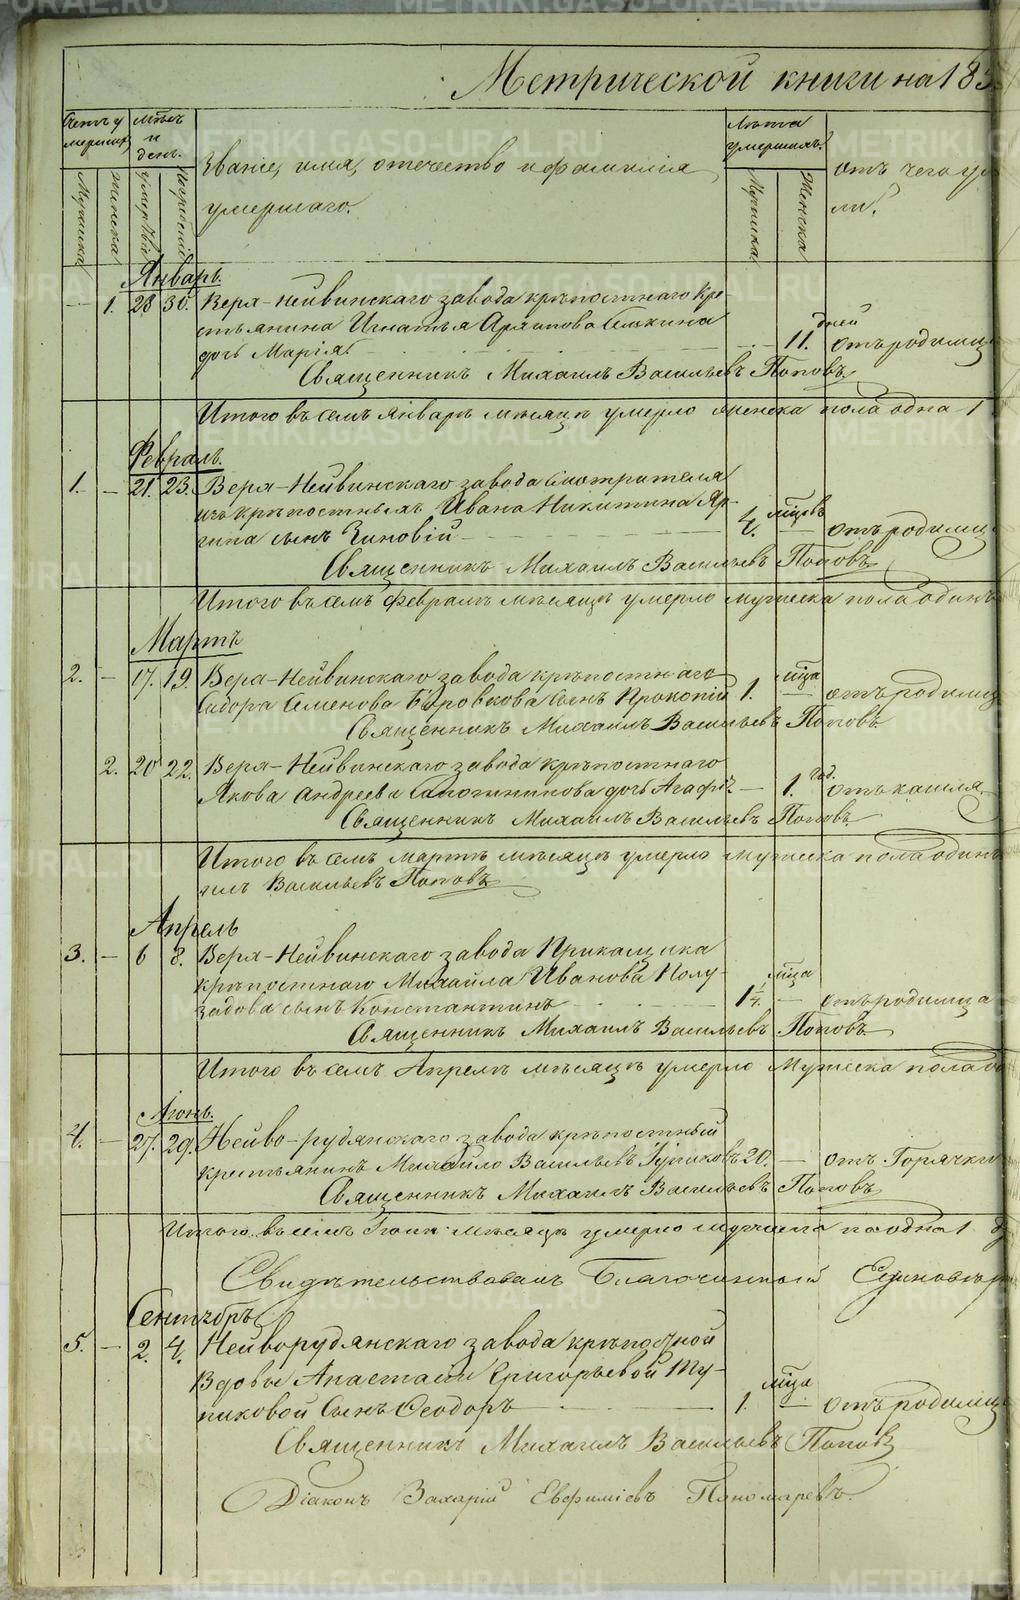 Метрической книги на 183
Счетъ умершихъ
Мужска
Женска
Мѣсяцъ и день.
умертвій
погребеній
Званіе, имя, отечество и фамилія
умершаго.
Лѣта умершихъ.
Мужска
Женска
отъ чего
ли.
Январь.
— 1. 28 30. Верх-Нейвинскаго завода крѣпостнаго кре-
стьянина Игнатья Архипова
дочь Марія. 11. дней отъ родимца
Священникъ Михаилъ Васильевъ Поповъ.
Итого въ семъ Январѣ мѣсяцѣ умерло женска пола одна 1
Февраль.
1. — 21. 23. Верх-Нейвинскаго завода Смотрителя
изъ крѣпостныхъ Ивана Никитина
сынъ Зиновій 4. мѣсцевъ — отъ родимца
Священникъ Михаилъ Васильевъ Поповъ.
Итого въ семъ Февралѣ мѣсяцѣ умерло мужеска пола одинъ
Мартъ
2. — 17. 19. Верх-Нейвинскаго завода крѣпостнаго
Сидора Семенова Боровкова сынъ Прокопій 1. мѣца — отъ родимца
Священникъ Михаилъ Васильевъ Поповъ.
2. 20 22. Верх-Нейвинскаго завода крѣпостнаго
Якова Андреева Сапожникова дочь — 1. год. отъ кашля.
Священникъ Михаилъ Васильевъ Поповъ.
Итого въ семъ Мартѣ мѣсяцѣ умерло мужеска пола одинъ
Васильевъ Поповъ
Апрель
3. — 6 8. Верх-Нейвинскаго завода Прикащика
крѣпостнаго Михайла Иванова Полу-
задова сынъ Константинъ 1¼. мѣца — отъ родимца
Священникъ Михаилъ Васильевъ Поповъ.
Итого въ семъ Апрелѣ мѣсяцѣ умерло Мужеска пола
Іюнь.
4. — 27. 29. Нейво-рудянскаго завода крѣпостный
крестьянинъ Михайло Васильевъ 20. — отъ Горячки
Священникъ Михаилъ Васильевъ Поповъ
Итого въ семъ Іюнѣ мѣсяцѣ умерло мужеска одна 1
Свидѣтельствовалъ Благочинный
Сентябрь
5. — 2. 4. Нейворудянскаго завода крѣпосной
Вдовы Анастасіи Григорьевой Ту-
пиковой сынъ Ѳеодоръ 1. мѣца. — отъ родимца
Священникъ Михаилъ Васильевъ Поповъ
Діаконъ Захарій Евфиміевъ Пономаревъ.
METRIKI.GASO-URAL.RU